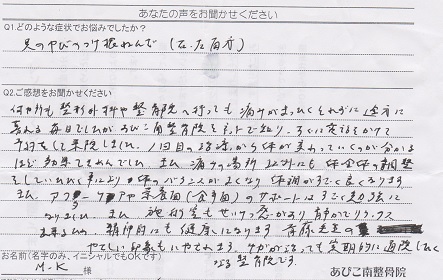 あなたの声をお聞かせください
Q1.どのような症状でお悩みでしたか?
足のゆびのつけ根ねんざ (右、左両方)
Q2.ご感想をお聞かせください
何ヶ所も整形外科や整骨院へ行っても痛みがまったくとれずに途方に
暮れる毎日でしたがあびこ南整骨院をネットで知り、すぐに電話をかけて
予約をして来院しました。1回目の治療から体が変わっていくのが分かる
ほど効果でませんでした。また、痛みの場所以外にも体全体の調整
をしていただく事により体のバランスがよくなり体調がすごく良くなります。
また、アフターケアや栄養面(食事面)のサポートはすごく勉強に
なりました。また、施術室も せいけつ感があり静かでリラックス
出来るため、精神的にも健康になります。斎藤先生の
やさしい印象もいやされます。ケガが治っても定期的に通院したく
なる整骨院です。
お名前(名字のみ、イニシャルでもokです)
M-K 様
あびこ南整骨院